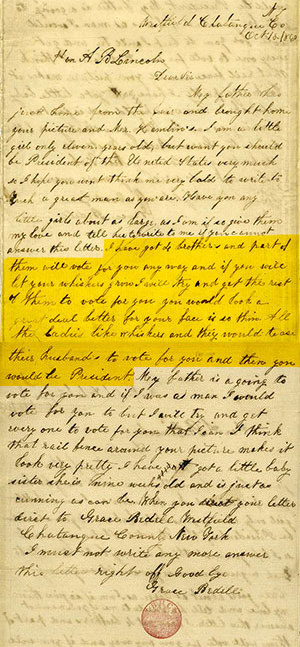 N Y
Westfield Chatauque Co
Oct 15. 1860
Hon A B Lincoln
Dear Sir
My father has
just home from the fair and brought home
your picture and Mr. Hamlin's. I am a little
girl only eleven years old, but want you should
be President of the United States very much
so I hope you wont think me very bold to write to
such a great man as you are. Have you any
little girls about as large as I am if so give them
my love and tell her to write to me if you cannot
answer this letter. I have got 4 brothers and part of
them will vote for you any way and if you will
let your whiskers grow I will try and get the rest
of them to vote for you you would look a
great deal better for your face is so thin. All
the ladies like whiskers and they would tease
their husband's to vote for you and then you
would be President. My father is a going to
vote for you and if I was a man I would
vote for you to but I will try and get
every one to vote for you that I can I think
that rail fence around your picture makes it
look very pretty I have got a little baby
sister she is nine weeks old and is just as
cunning as can be. When you direct your letter
direct to Grace Bedell Westfield
Chatauque County New York
I must not write any more answer
this letter right off Good bye
Grace Bedell